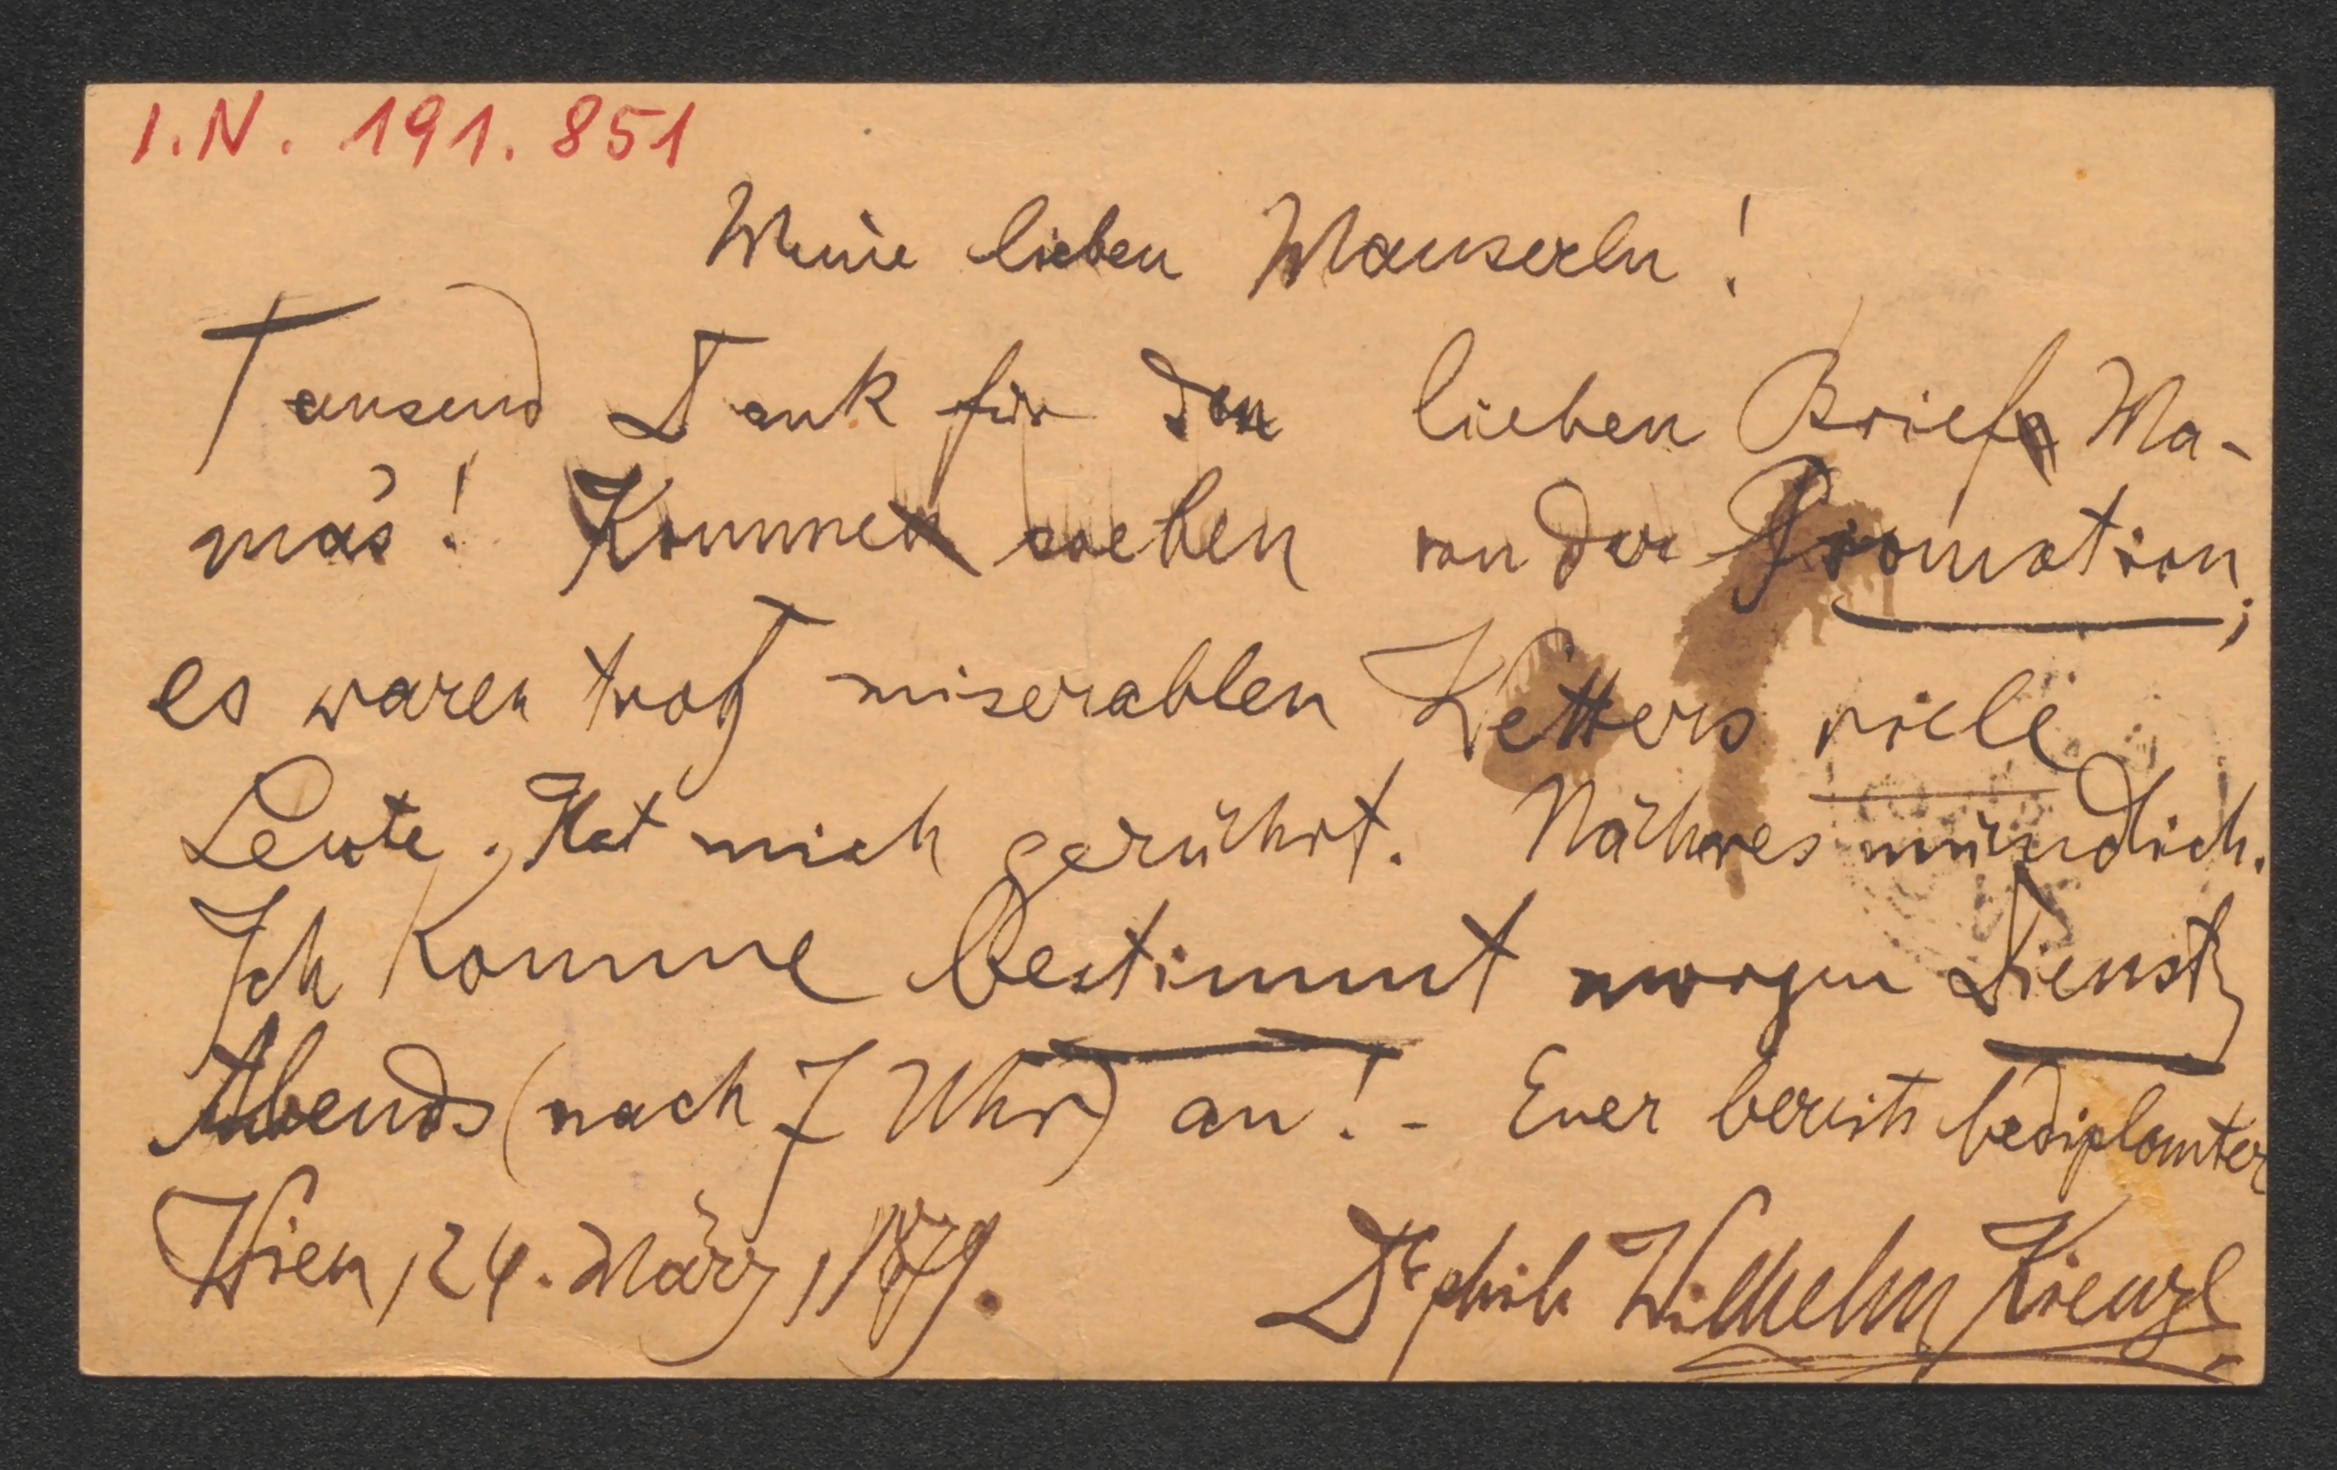 I.N. 191.851
Meine lieben Mauserln!
Tausend Dank für den lieben Brief Ma-
ma's! Komme soeben von der Promotion;
es waren trotz miserablen Wetters viele
Leute. Hat mich gerührt. Nähres mündlich.
Ich komme bestimmt morgen Dienst
Abends (nach 7 Uhr) an! - Euer bereits bediplomter
Wien, 24. März, 1879. Dr phil Wilhelm Kienzl.